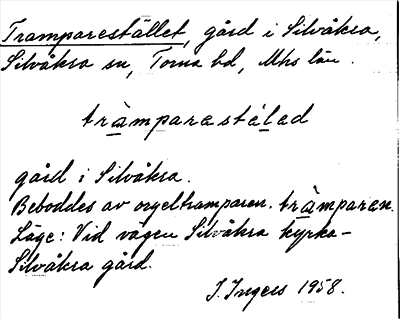 Tramparestället, gård i Silvåkra,
Silvåkra sn, Torna hd, Mhs län.
tràmparestélед
gård i Silvåkra.
Beboddes av orgeltramparen. tràmparen.
Läge: Vid vägen Silvåkra kyrka-
Silvåkra gård.
I. Ingers 1958.